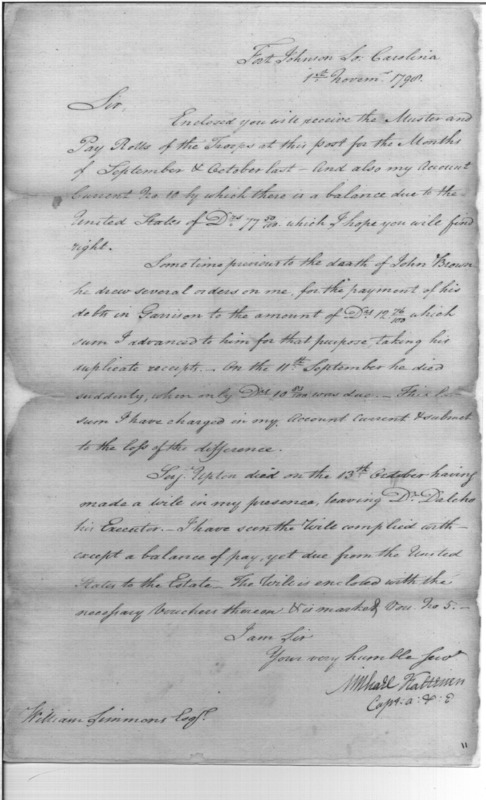 Fort Johnson So. Carolina
1st. Novem. 1798.
Sir,
Enclosed you will receive the Muster and
Pay Rolls of the Troops at this post for the Months
of September & October last — And also my Account
Current No. 10 by which there is a balance due to the
United States of Drs. 77 which I hope you will find
right.
Some time previous to the death of John Brown
he drew several orders on me, for the payment of his
debts in Garrison to the amount of Drs. 12 76/100 which
sum I advanced to him for that purpose taking his
duplicate receipts. — On the 11th September he died
suddenly, when only Drs. 10 was due. — This
sum I have charged in my, Account Current & submit
to the loss of the difference.
Serj. Upton died on the 13th October having
made a will in my presence, leaving Dr. Dalcho
his Executor. — I have seen the Will complied with —
except a balance of pay, yet due from the United
States to the Estate — The Will is enclosed with the
necessary Vouchers thereon & is marked Vou. No 5. —
I am Sir
Your very humble Servt
Michael Kalteisen
Capt. a. & E
William Simmons Esqr.
11